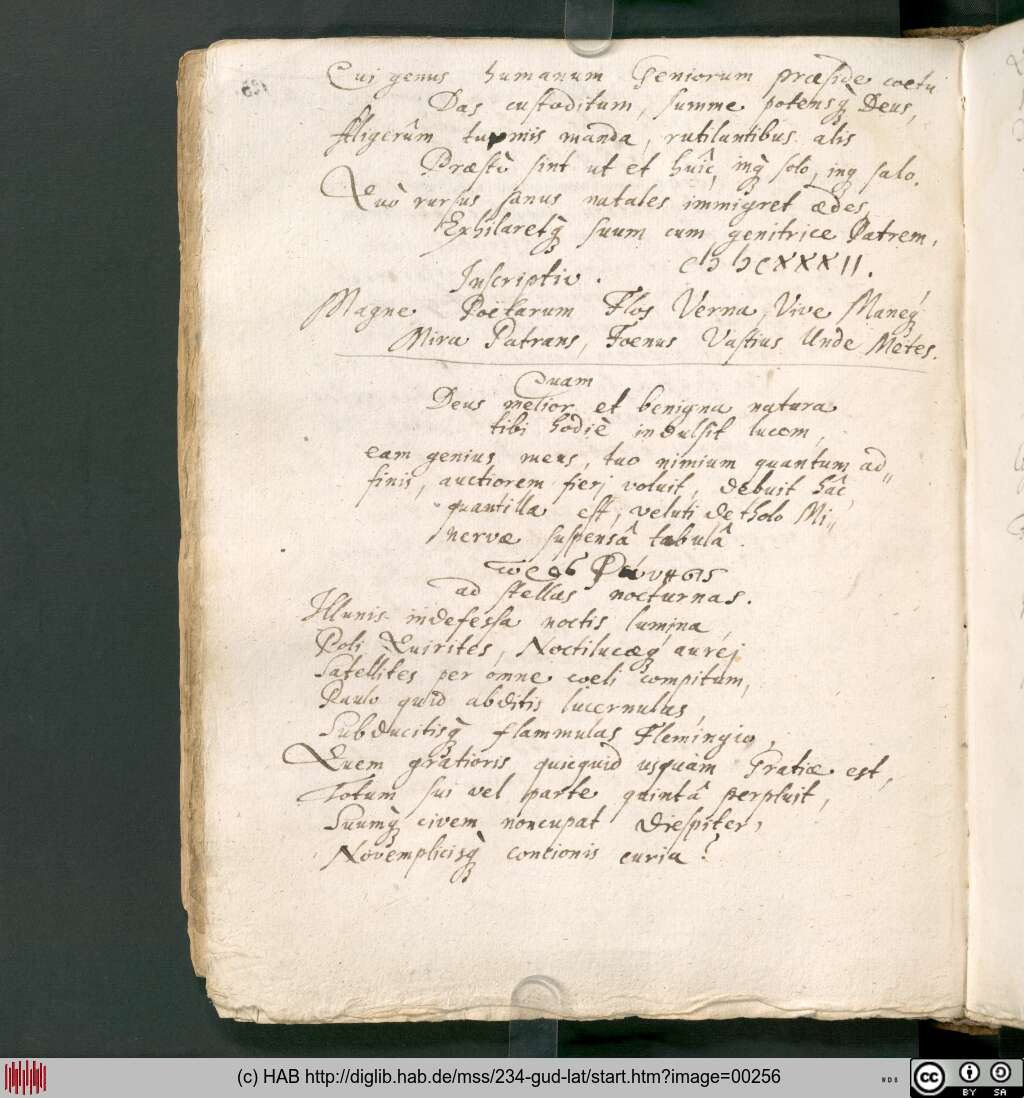 Cui genus humanum Geniorum præside coetu
Das custoditum, summe potensq́ Deus,
Aligerûm turmis manda, rutilantibus alis
Præstò sint ut et huîc, inq́ solo, inq salo.
Quò rursus sanus natales immigret ædes,
Exhilaretq́ suum cum genitrice Patrem,
CIƆ IƆCXXXII.
Inscriptio.
Magne Poëtarum Flos Verna, Vive Maneq́
Mira Patrans, Foenus Vastius Unde Metes.
Quam
Deus melior et benigna natura
tibi hodiè indulsit lucem,
eam genius meus, tuo nimium quantum ad„
finis, auctiorem fierj voluit, debuit hâc,
quantilla est, veluti de tholo Mi„
nervæ suspensâ tabulâ.
ad stellas nocturnas.
Illunis indefessa noctis lumina,
Poli Quirites, Noctilucæq́ aurej
Satellites per omne coeli compitum,
Paulo quid abditis lucernulas,
Subducitisq́ flammulas Flemingio,
Quem gratioris quicquid usquam Gratiæ est,
Totum sui vel parte quintâ perpluit,
Suumq́ civem noncupat Diespiter,
Novemplicisq́ contionis curia?
(c) HAB http://diglib.hab.de/mss/234-gud-lat/start.htm?image=00256
WDB
cc
BY SA